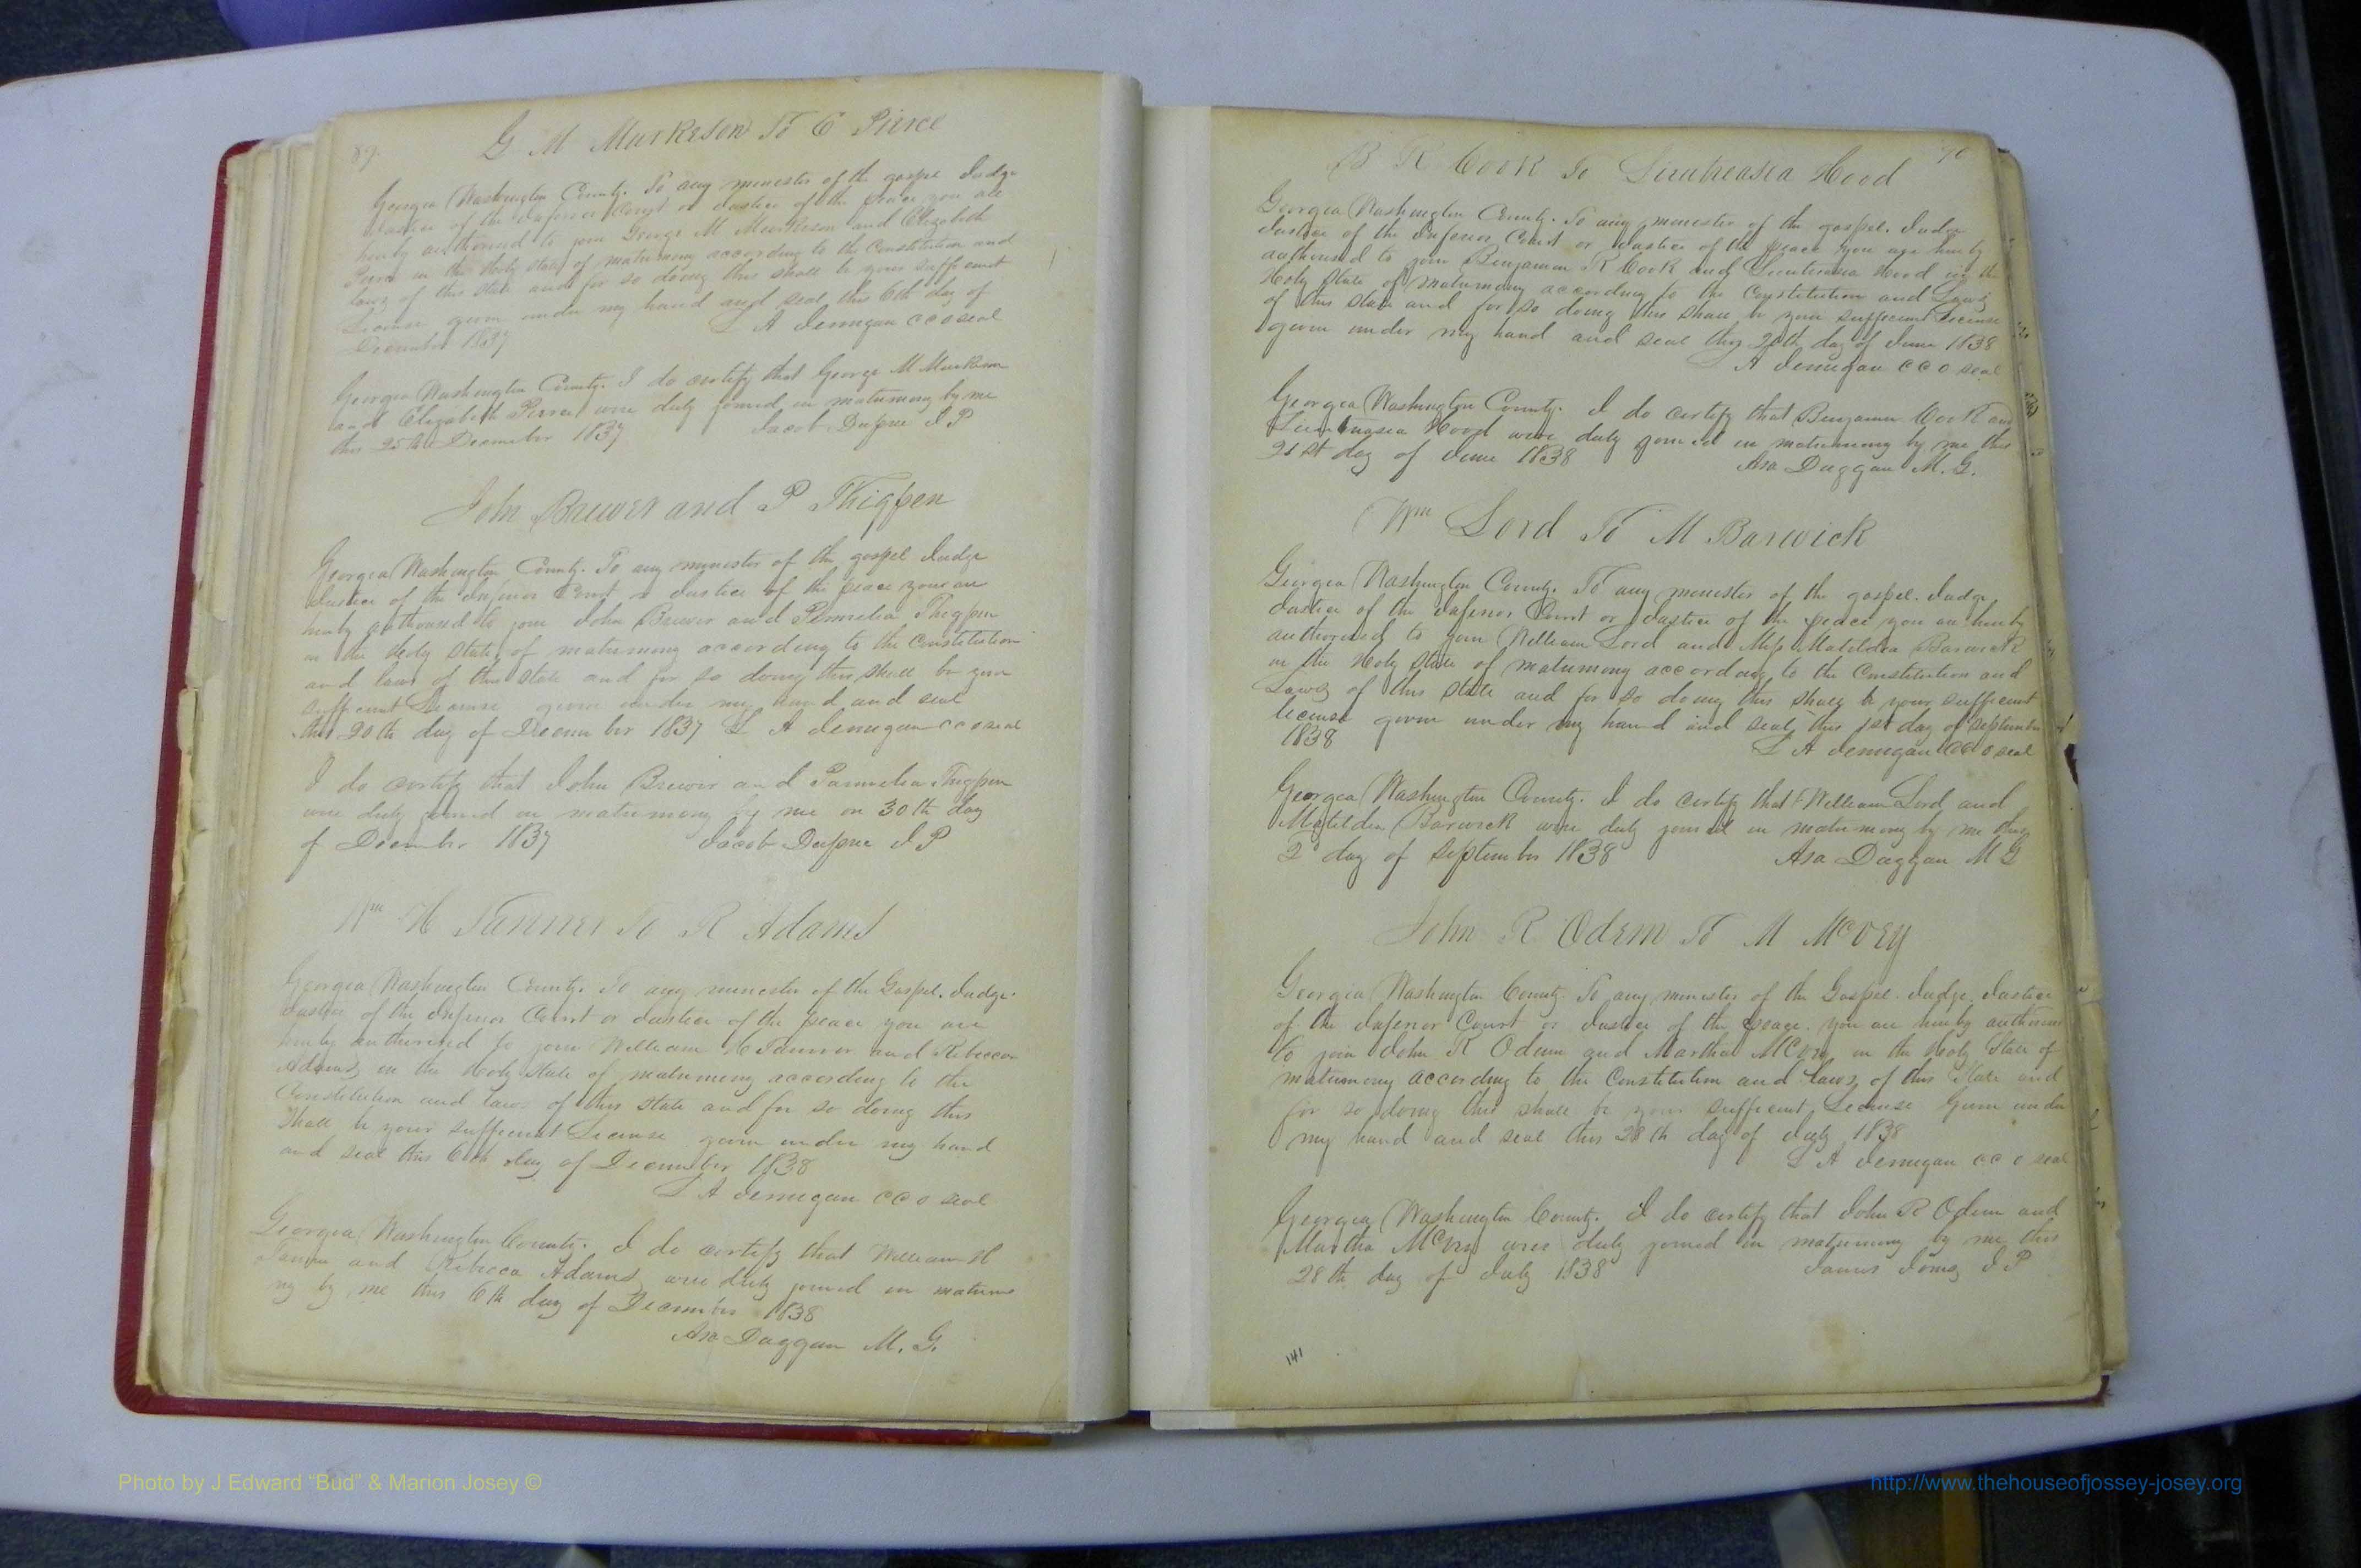 89.
G M Murkeson To E Pierce
Georgia Washington County. To any minester of the gospel Judge
Justice of the Inferior Court or Justice of the peace you are
hereby authorised to join George M Murkeson and Elizabeth
Pierce in the Holy State of matrimony according to the Constitution and
laws of this State and for so doing this shall be your sufficient
License given under my hand and seal this 6th day of
December 1837 L A Jernigan CCO seal
Georgia Washington County. I do certify that George M Murkeson
and Elizabeth Pierce were duly joined in matrimony by me
this 25th December 1837 Jacob J P
John Brewer and P Thigpen
Georgia Washington County. To any minester of the gospel Judge
Justice of the Inferior Court or Justice of the peace you are
hereby authorised to join John Brewer and Thigpen
in the Holy State of matrimony according to the Constitution
and laws of this State and for so doing this shall be your
sufficient License given under my hand and seal
this 20th day of December 1837 L A Jernigan cco seal
I do certify that John Brewer and Thigpen
were duly joined in matrimony by me on 30th day
of December 1837 Jacob J P
Wm H Tanner To R Adams
Georgia Washington County. To any minester of the Gospel. Judge.
Justice of the Inferior Court or Justice of the peace you are
hereby authorised to join William H Tanner and Rebecca
Adams in the Holy State of matrimony according to the
Constitution and laws of this State and for so doing this
shall be your sufficient License given under my hand
and seal this 6th day of December 1838
L A Jernigan CCO seal
Georgia Washington County. I do certify that William H
Tanner and Rebecca Adams were duly joined in matrimo
ny by me this 6th day of December 1838
Asa Duggan M. G.
90
B R Cook To Hood
Georgia Washington County. To any minester of the gospel. Judge
Justice of the Inferior Court or Justice of the peace you are hereby
authorised to join Benjamin R Cook and Hood in the
Holy State of matrimony according to the Constitution and Laws
of this State and for so doing this shall be your sufficient License
given under my hand and seal this 20th day of June 1838
L A Jernigan CCO seal
Georgia Washington County. I do certify that Benjamin Cook and
Hood were duly joined in matrimony by me this
21st day of June 1838 Asa Duggan M. G.
Wm Lord To M Barwick
Georgia Washington County. To any minester of the gospel. Judge,
Justice of the Inferior Court or Justice of the peace you are hereby
authorised to join William Lord and Miss Matildia Barwick
in the Holy State of matrimony according to the Constitution and
Laws of this State and for so doing this shall be your sufficient
license given under my hand and seal this 1st day of September
1838 L A Jernigan CCO seal
Georgia Washington County. I do certify that William Lord and
Matildia Barwick were duly joined in matrimony by me this
2 day of September 1838 Asa Duggan M G
John R Odem To M McVey
Georgia Washington County To any minester of the Gospel. Judge. Justice
of the Inferior Court or Justice of the peace. you are hereby authorised
to join John R Odum and Martha McVey in the Holy State of
matrimony according to the Constitution and laws of this State and
for so doing this shall be your sufficient License Given under
my hand and seal this 28th day of July 1838
L A Jernigan CCO seal
Georgia Washington County. I do certify that John R Odum and
Martha McVey were duly joined in matrimony by me this
28th day of July 1838 James Jones J P
141
Photo by J Edward “Bud” & Marion Josey ©
http://www.thehouseofjossey-josey.org